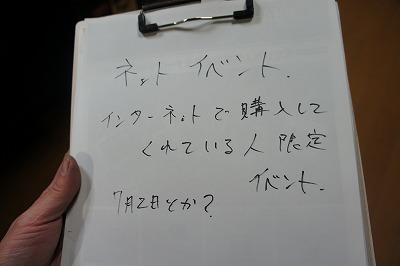 ネット イベント.
インターネットで購入して
くれている人 限定
イベント.
7月2日とか?